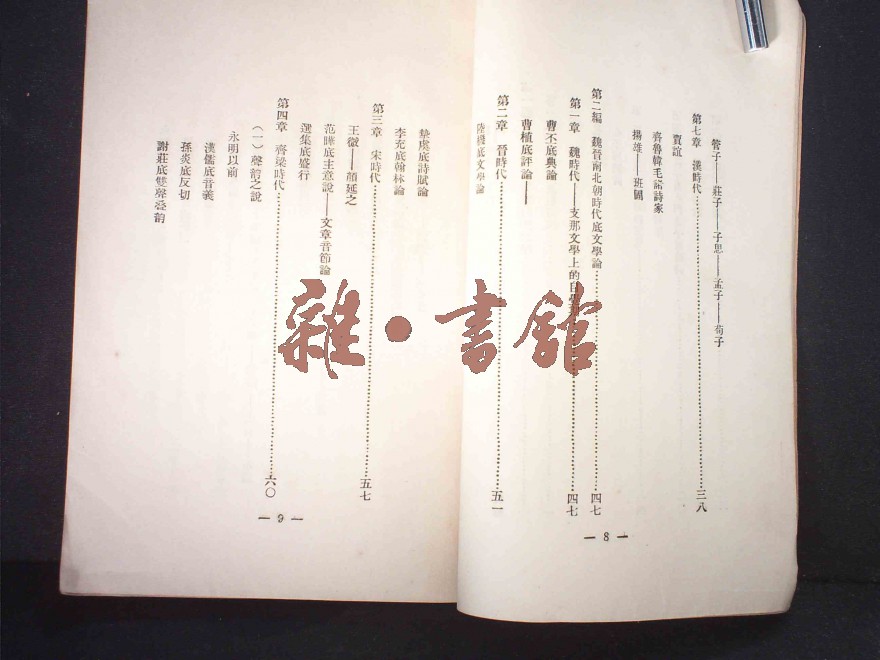 管子——莊子——子思——孟子——荀子
第七章 漢時代……三八
賈誼
齊魯韓毛諸詩家
揚雄——班固
第二編 魏晉南北朝時代底文學論……四七
第一章 魏時代——支那文學上的自覺……四七
曹丕底典論
曹植底評論——
第二章 晉時代……五一
陸機底文學論
— 8 —
摯虞底詩賦論
李充底翰林論
第三章 宋時代……五七
王微——顏延之
范曄底主意說——文章音節論
選集底盛行
第四章 齊梁時代……六〇
(一)聲韵之說
永明以前
漢儒底音義
孫炎底反切
謝莊底雙聲叠韵
— 9 —
雜·書館